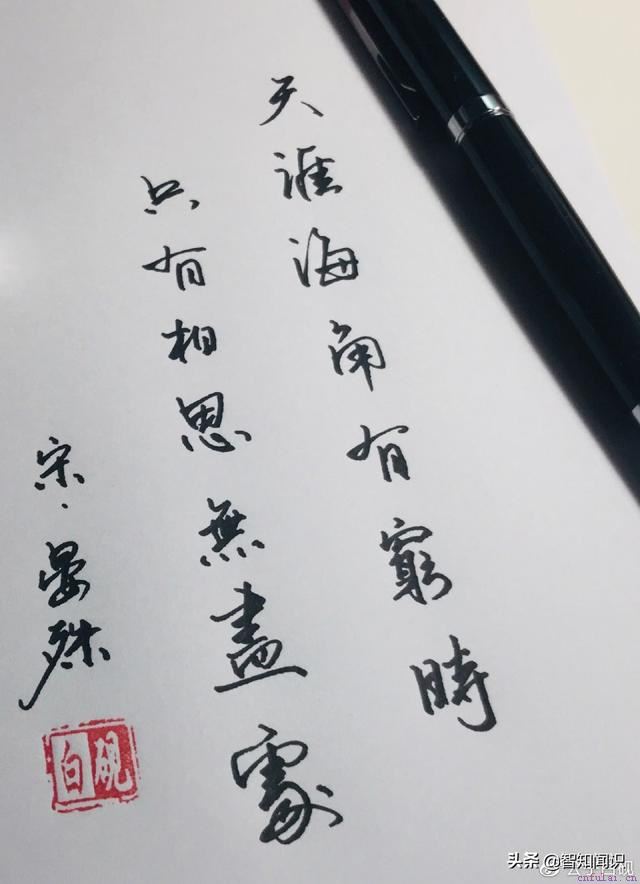 天涯海角有窮時
只有相思無盡處
宋·晏殊
白硯
头条 @智知闻识
cnfulai.cn